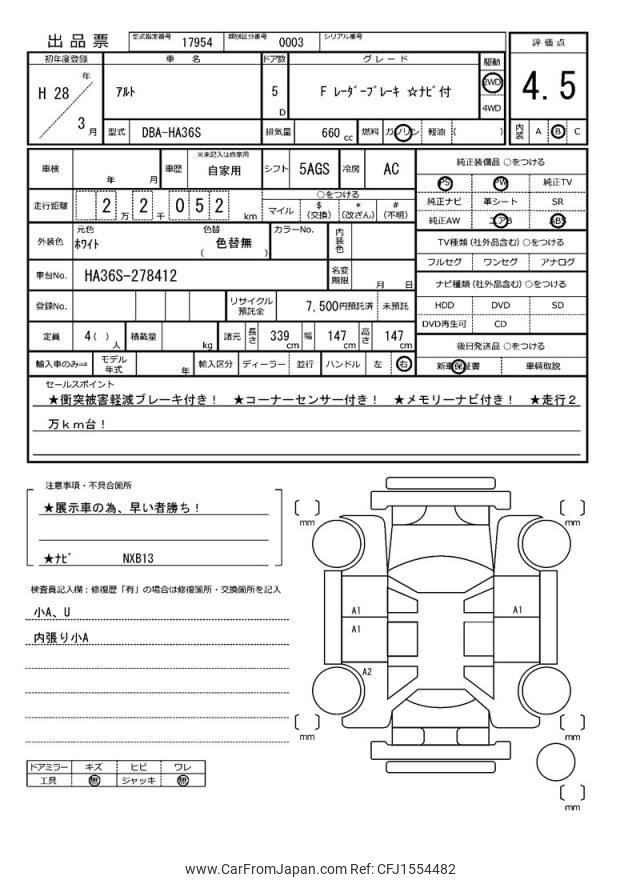 出品票 型式指定番号 17954 類別区分番号 0003 シリアル番号
評価点
4.5
内装 A B C
初年度登録 車名 ドア数 グレード 駆動
H 28 年 3 月
ｱﾙﾄ 5 D F ﾚｰﾀﾞｰﾌﾞﾚｰｷ ☆ﾅﾋﾞ付 2WD
4WD
型式 DBA-HA36S 排気量 660 cc 燃料 ガソリン 軽油 ( )
車検 年 月 車歴 ※未記入は自家用 自家用 シフト 5AGS 冷房 AC
走行距離 2 万 2 千 0 5 2 km
○をつける
マイル $ (交換) * (改ざん) # (不明)
外装色 元色 ﾎﾜｲﾄ 色替 ( 色替無 ) カラーNo. 内装色
車台No. HA36S-278412 名変期限 月 日
登録No. リサイクル預託金 7,500円預託済 未預託
定員 4( ) 人 積載量 kg 諸元 長さ 339 cm 幅 147 cm 高さ 147 cm
輸入車のみ⇒ モデル年式 年 輸入区分 ディーラー 並行 ハンドル 左 右
純正装備品 ○をつける
PS PW 純正TV
純正ナビ 革シート SR
純正AW エアB ABS
TV種類 (社外品含む) ○をつける
フルセグ ワンセグ アナログ
ナビ種類 (社外品含む) ○をつける
HDD DVD SD
DVD再生可 CD
後日発送品 ○をつける
新車保証書 車輌取説
セールスポイント
★衝突被害軽減ブレーキ付き！ ★コーナーセンサー付き！ ★メモリーナビ付き！ ★走行２
万ｋｍ台！
注意事項・不具合箇所
★展示車の為、早い者勝ち！
★ﾅﾋﾞ NXB13
検査員記入欄：修復歴「有」の場合は修復箇所・交換箇所を記入
小A、U
内張り小A
ドアミラー キズ ヒビ ワレ
工具 無 ジャッキ 無
mm
mm
A1
A1
A1
A2
mm
mm
mm
www.CarFromJapan.com Ref: CFJ1554482